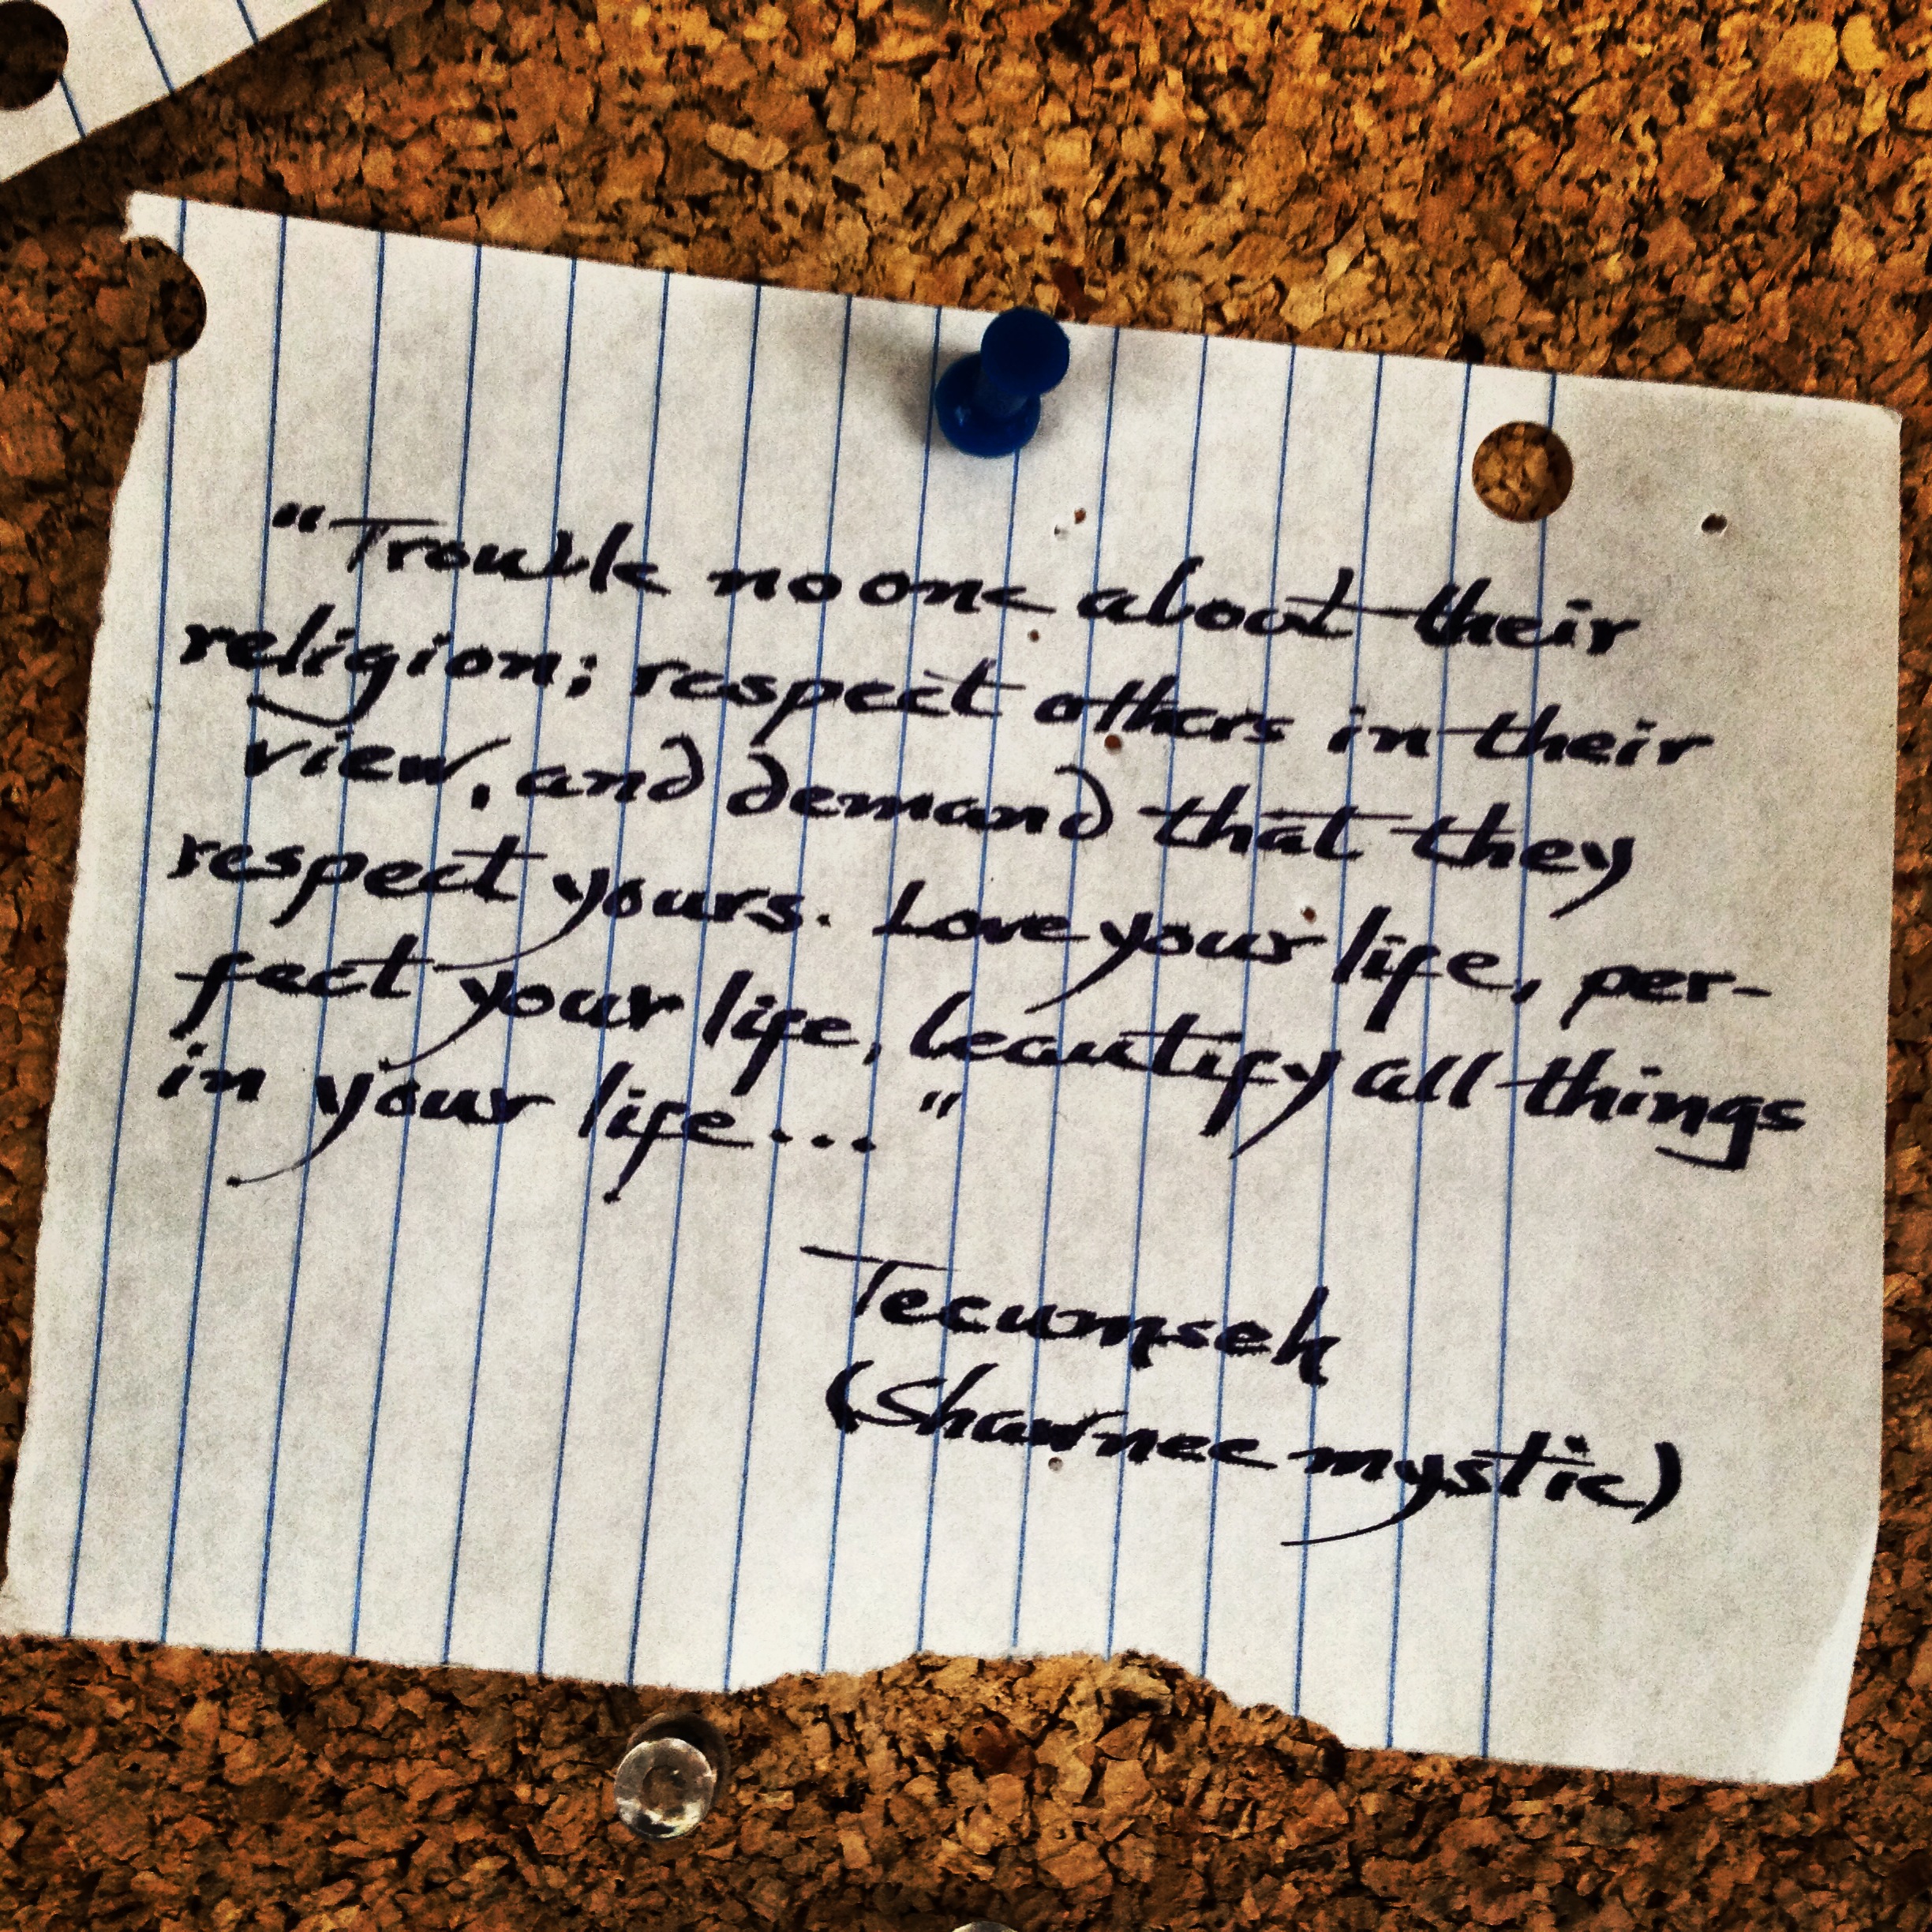 "Trouble no one about their
religion; respect others in their
view, and demand that they
respect yours. Love your life, per-
fect your life, beautify all things
in your life..."
Tecumseh
(Shawnee mystic)